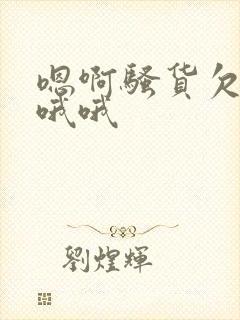 嗯啊骚货欠
哦哦
劉煌輝